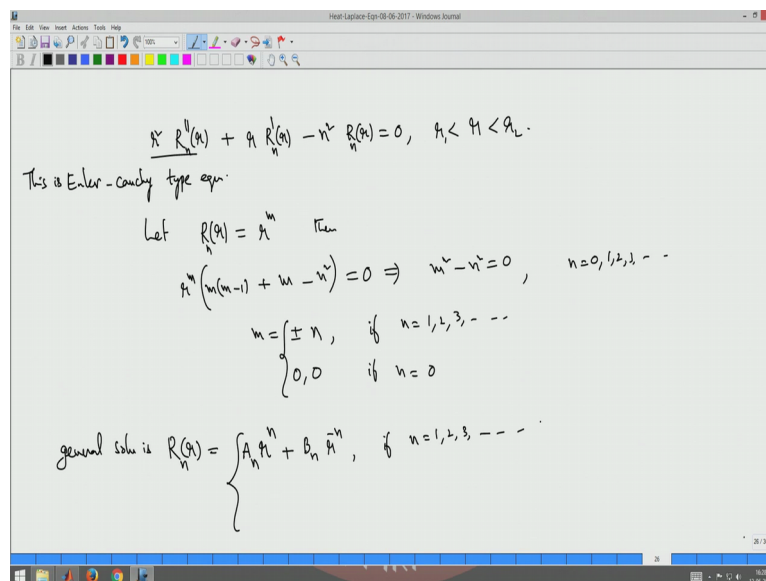 Heat-Laplace-Eqn-08-06-2017 - Windows Journal
File Edit View Insert Actions Tools Help
100%
B I
r² Rₙ''(r) + r Rₙ'(r) − n² Rₙ(r) = 0, r₁ < r < r₂.
This is Euler-Cauchy type eqn.
Let Rₙ(r) = r^m then
r^m (m(m−1) + m − n²) = 0 ⇒ m² − n² = 0, n = 0, 1, 2, 3, - - -
m = { ± n, if n = 1, 2, 3, - - -
0, 0 if n = 0
general soln is Rₙ(r) = { Aₙ rⁿ + Bₙ r⁻ⁿ, if n = 1, 2, 3, - - - -
26